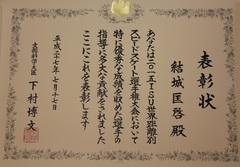 表彰状
結城匡啓殿
あなたは二〇一五ISU世界距離別
スピードスケート選手権大会において
特に優秀な成績を収めた選手の
指導に多大な貢献をされました
ここにこれを表彰します
平成二七年七月十七日
文部科学大臣
下村博文